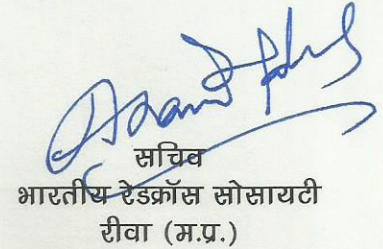 सचिव
भारतीय रेडक्रॉस सोसायटी
रीवा (म.प्र.)